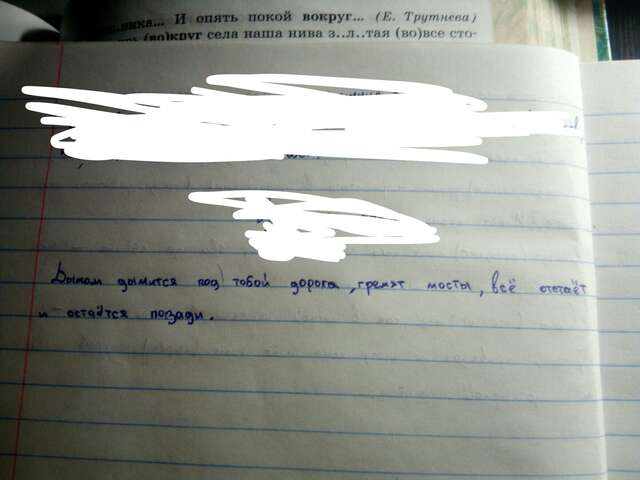 ...вика... И опять покой вокруг... (Е. Трутнева)
(во)круг села наша нива з..л..тая (во)все сто-
Дымом дымится под тобой дорога, гремят мосты, всё отстаёт
и остаётся позади.